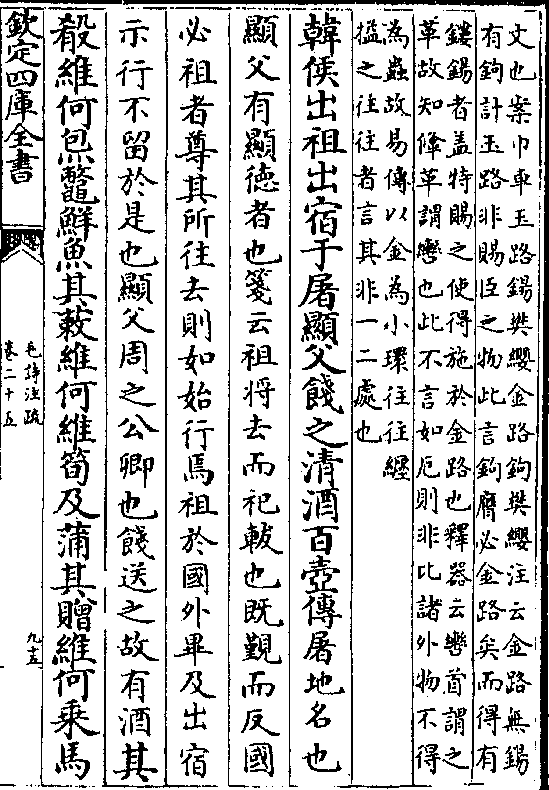 文也案巾車玉路鍚樊纓金路鉤樊纓注云金路無鍚
有鉤計玉路非賜臣之物此言鉤膺必金路矣而得有
鏤鍚者蓋特賜之使得施於金路也釋器云轡首謂之
革故知鞗革謂轡也此不言如厄則非比諸外物不得
為蟲故易傳以金為小環往往纒
搤之往往者言其非一二處也
韓侯出祖出宿于屠顯父餞之清酒百壺傳屠地名也
顯父有顯徳者也箋云祖将去而祀軷也既覲而反國
必祖者尊其所往去則如始行焉祖於國外畢乃出宿
示行不留於是也顯父周之公卿也餞送之故有酒其
殽維何炰鼈鮮魚其蔌維何維筍及蒲其贈維何乗馬
欽定四庫全書
毛詩注疏
卷二十五
九十五